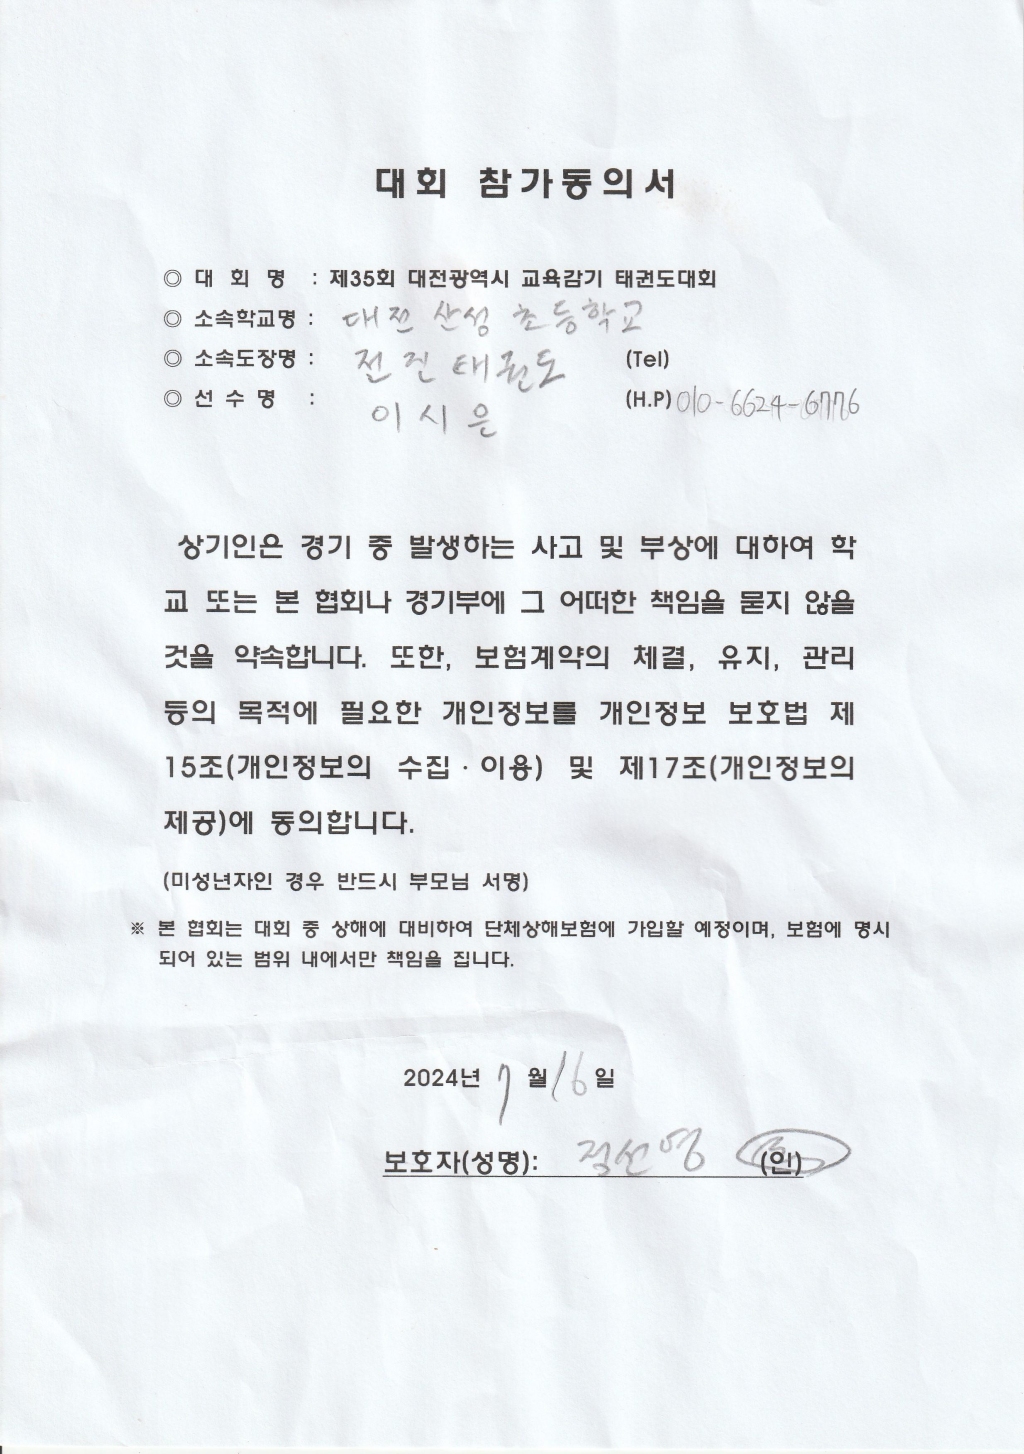 대회 참가동의서
◎ 대 회 명 : 제35회 대전광역시 교육감기 태권도대회
◎ 소속학교명 : 대전 산성 초등학교
◎ 소속도장명 : 전진태권도 (Tel)
◎ 선 수 명 : 이시은 (H.P) 010-6624-6776
상기인은 경기 중 발생하는 사고 및 부상에 대하여 학
교 또는 본 협회나 경기부에 그 어떠한 책임을 묻지 않을
것을 약속합니다. 또한, 보험계약의 체결, 유지, 관리
등의 목적에 필요한 개인정보를 개인정보 보호법 제
15조(개인정보의 수집·이용) 및 제17조(개인정보의
제공)에 동의합니다.
(미성년자인 경우 반드시 부모님 서명)
※ 본 협회는 대회 중 상해에 대비하여 단체상해보험에 가입할 예정이며, 보험에 명시
되어 있는 범위 내에서만 책임을 집니다.
2024년 7월 16일
보호자(성명): 정선영 (인)